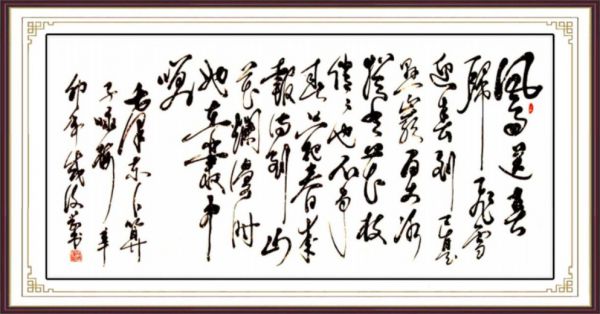 風雨送春
歸飛雪
迎春到已是
懸崖百丈冰
犹有花枝
俏俏也不争
春只把春来
報待到山
花爛漫时
她在丛中
笑
毛澤东卜算
子咏梅辛
卯年书